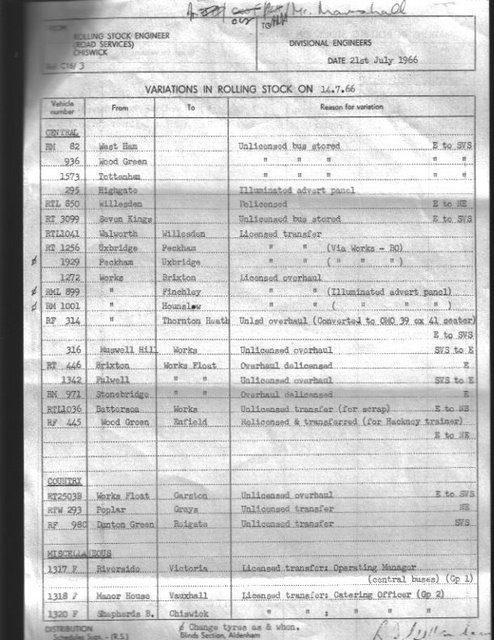 Mr. Marshall
FROM
ROLLING STOCK ENGINEER
(ROAD SERVICES)
CHISWICK
DIVISIONAL ENGINEERS
C16/ 3
DATE 21st July 1966
VARIATIONS IN ROLLING STOCK ON 14.7.66
Vehicle number From To Reason for variation
CENTRAL
RM 82 West Ham Unlicensed bus stored E to SVS
936 Wood Green " " " " "
1573 Tottenham " " " " "
295 Highgate Illuminated advert panel
RTL 850 Willesden Relicensed E to NE
RT 3099 Seven Kings Unlicensed bus stored E to SVS
RTL1041 Walworth Willesden Licensed transfer
RT 1256 Uxbridge Peckham " " (Via Works - BO)
1929 Peckham Uxbridge " " ( " " " )
1272 Works Brixton Licensed overhaul
RML 899 " Finchley " " (Illuminated advert panel)
RM 1001 " Hounslow " " ( " " " )
RF 314 " Thornton Heath Unlsd overhaul (Converted to OMO 39 ex 41 seater)
E to SVS
316 Muswell Hill Works Unlicensed overhaul SVS to E
RT 446 Brixton Works Float Overhaul delicensed E
1342 Fulwell " " Unlicensed overhaul SVS to E
RM 971 Stonebridge " " Overhaul delicensed E
RTL1036 Battersea Works Unlicensed transfer (for scrap) E to NE
RF 445 Wood Green Enfield Relicensed & transferred (for Hackney trainer)
E to NE
COUNTRY
RT2503B Works Float Garston Unlicensed overhaul E to SVS
RFW 293 Poplar Grays Unlicensed transfer NE
RF 98C Dunton Green Reigate Unlicensed transfer SVS
MISCELLANEOUS
1317 F Riverside Victoria Licensed transfer: Operating Manager
(central buses) (Gp 1)
1318 F Manor House Vauxhall Licensed transfer: Catering Officer (Gp 2)
1320 F Shepherds B. Chiswick " " : " "
DISTRIBUTION
Schedules Supt. - (R.S.)
Change tyres as & when.
Blinds Section, Aldenham